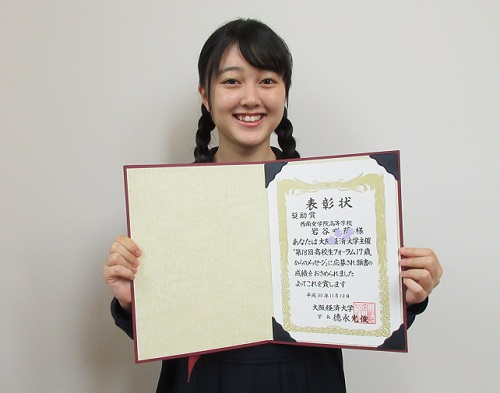 表彰状
奨励賞
西南女学院高等学校
岩谷 様
あなたは大阪経済大学主催
「第18回高校生フォーラム17歳
からのメッセージ」に応募され頭書の
成績をおさめられました
よってこれを賞します
平成30年11月10日
大阪経済大学
学長 德永光俊